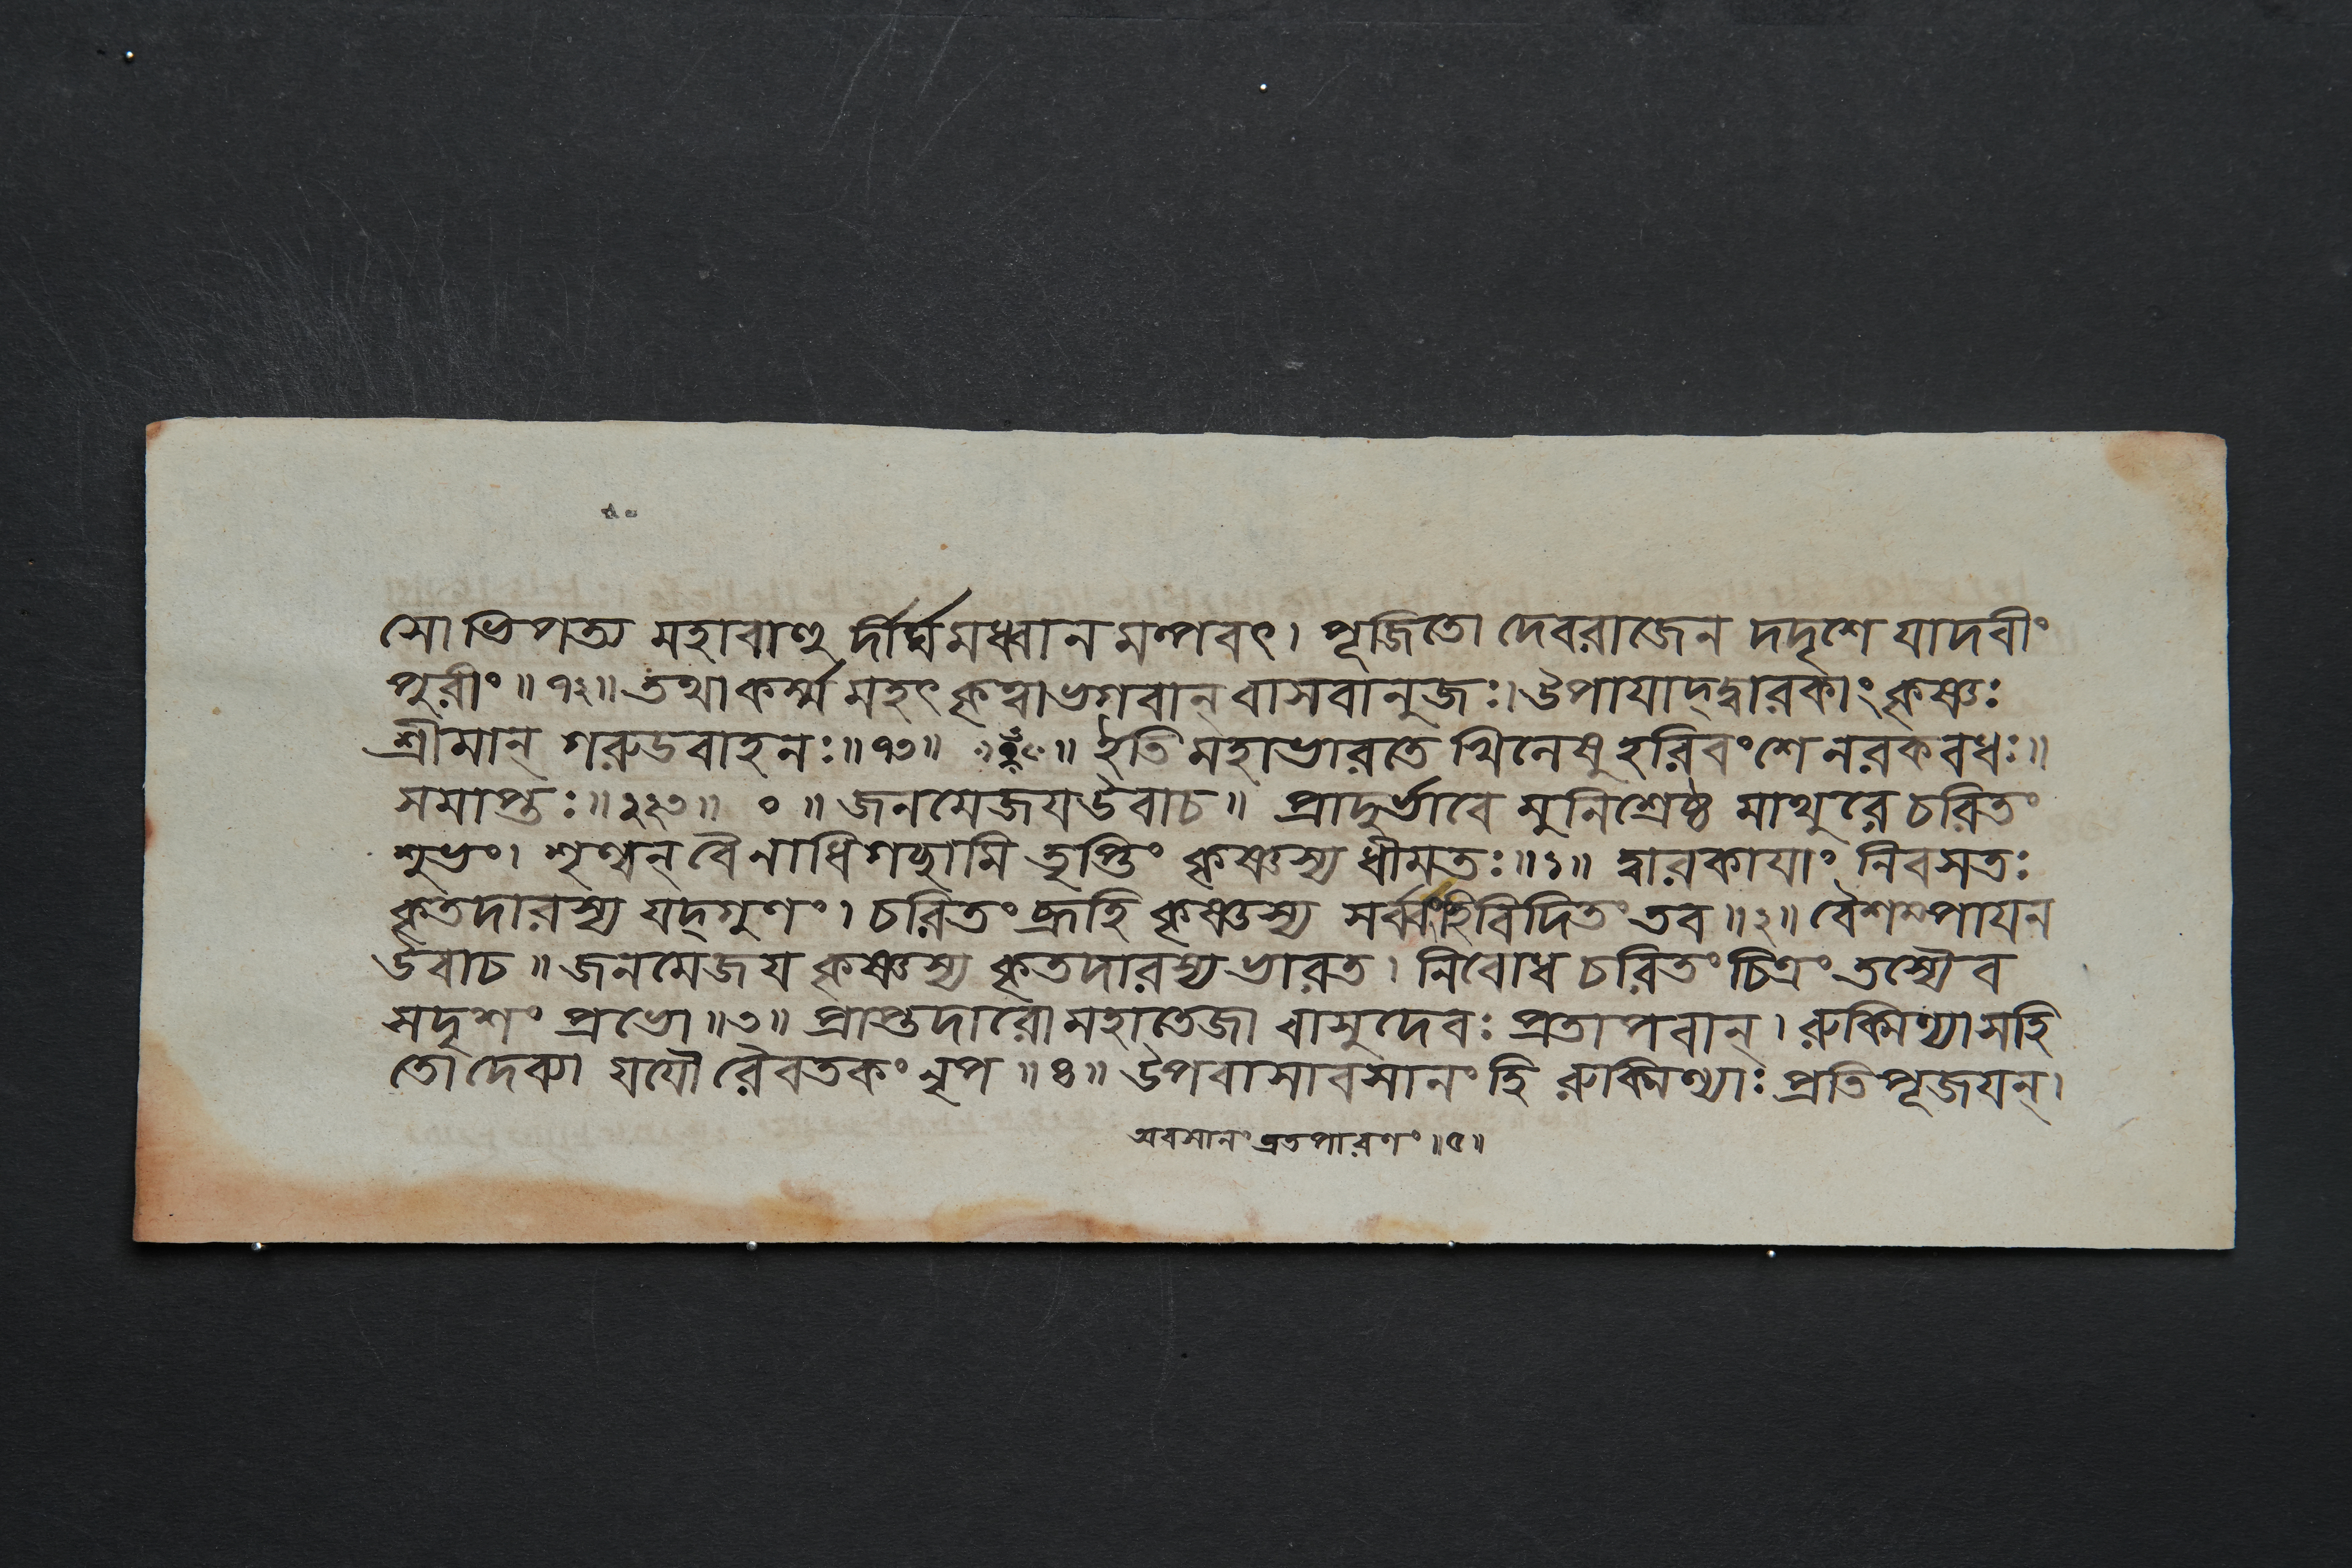 সোভিপত্য মহাবাহু র্দীর্ঘমধ্বানমল্পবৎ। পূজিতো দেবরাজেন দদৃশে যাদবীং
পুরীং॥৭২॥ তথা কর্ম্ম মহৎ কৃত্বা ভগবান্ বাসবানুজঃ। উপাযাদ্দ্বারকাং কৃষ্ণঃ
শ্রীমান্ গরুডবাহনঃ॥৭৩॥ ॥ ইতি মহাভারতে খিলেষু হরিবংশে নরকবধঃ॥
সমাপ্তঃ॥২২৩॥ ০ ॥ জনমেজয উবাচ॥ প্রাদুর্ভাবে মুনিশ্রেষ্ঠ মাথুরে চরিতং
শুভং। শৃণ্বন্ বৈ নাধিগচ্ছামি তৃপ্তিং কৃষ্ণস্য ধীমতঃ॥১॥ দ্বারকাযাং নিবসতঃ
কৃতদারস্য যদ্গুণং। চরিতং ব্রূহি কৃষ্ণস্য সর্ব্বংহি বিদিতং তব॥২॥ বৈশম্পাযন
উবাচ॥ জনমেজয কৃষ্ণস্য কৃতদারস্য ভারত। নিবোধ চরিতং চিত্রং তস্যৈব
সদৃশং প্রভো॥৩॥ প্রাপ্তদারো মহাতেজা বাসুদেবঃ প্রতাপবান্। রুক্মিণ্যা সহি
তো দেব্যা যযৌ রৈবতকং নৃপ॥৪॥ উপবাসাবসানং হি রুক্মিণ্যাঃ প্রতিপূজযন্।
অবসানং ব্রতপারণং॥৫॥